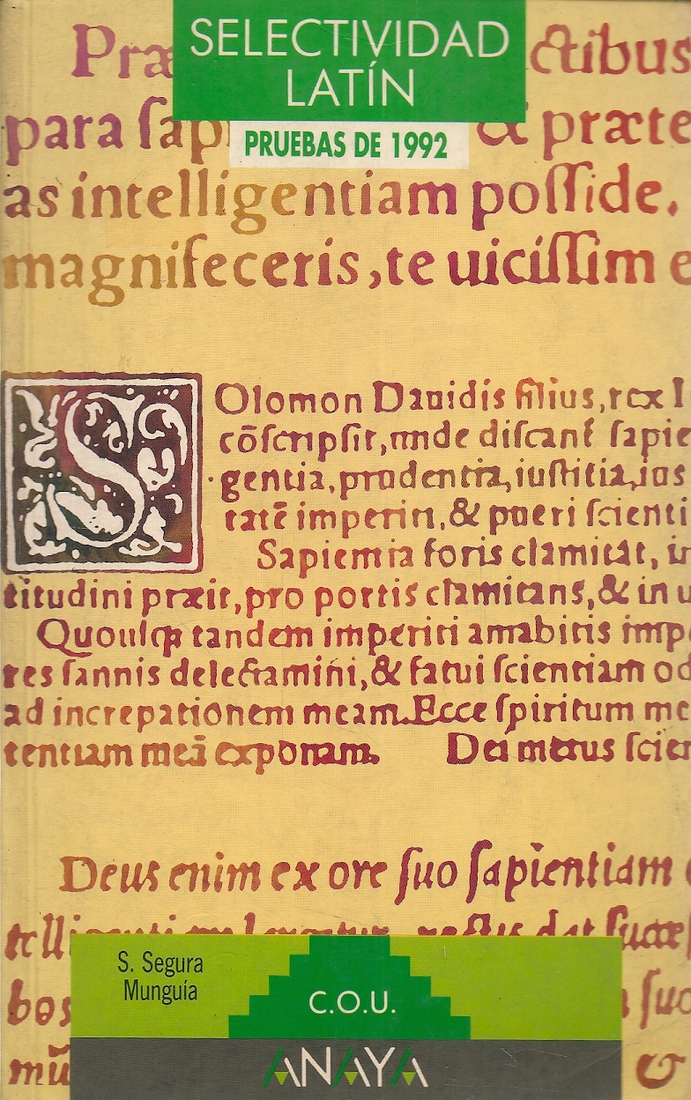 SELECTIVIDAD
LATÍN
PRUEBAS DE 1992
Præ ctibus
para ſap & præte
as intelligentiam poſſide.
magnifeceris, te uiciſſim e
SOlomon Dauidis filius, rex I
cōſcripſit, unde diſcant ſapie
gentia, prudentia, iuſtitia, ius
tatē imperiri, & pueri ſcienti
Sapientia foris clamitat, in
titudini præit, pro portis clamitans, & in u
Quouſqꝫ tandem imperiti amabitis imp
res ſannis delectamini, & fatui ſcientiam od
ad increpationem meam. Ecce ſpiritum me
tentiam meā exponam. Dei metus ſcien
Deus enim ex ore ſuo ſapientiam
telli rectis dat ſucceſ
bos ſuo
mū &
S. Segura
Munguía
C.O.U.
ANAYA